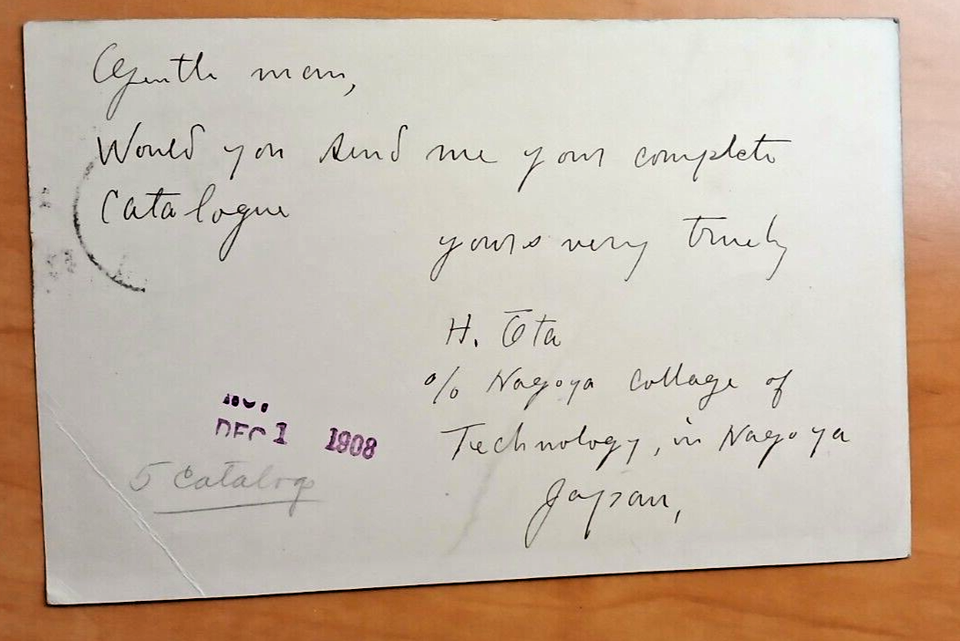 Gentle man,
Would you send me your complete
Catalogue
yours very truely
H. Ōta
c/o Nagoya Collage of
Technology, in Nagoya
Japan,
DEC 1 1908
5 Catalog